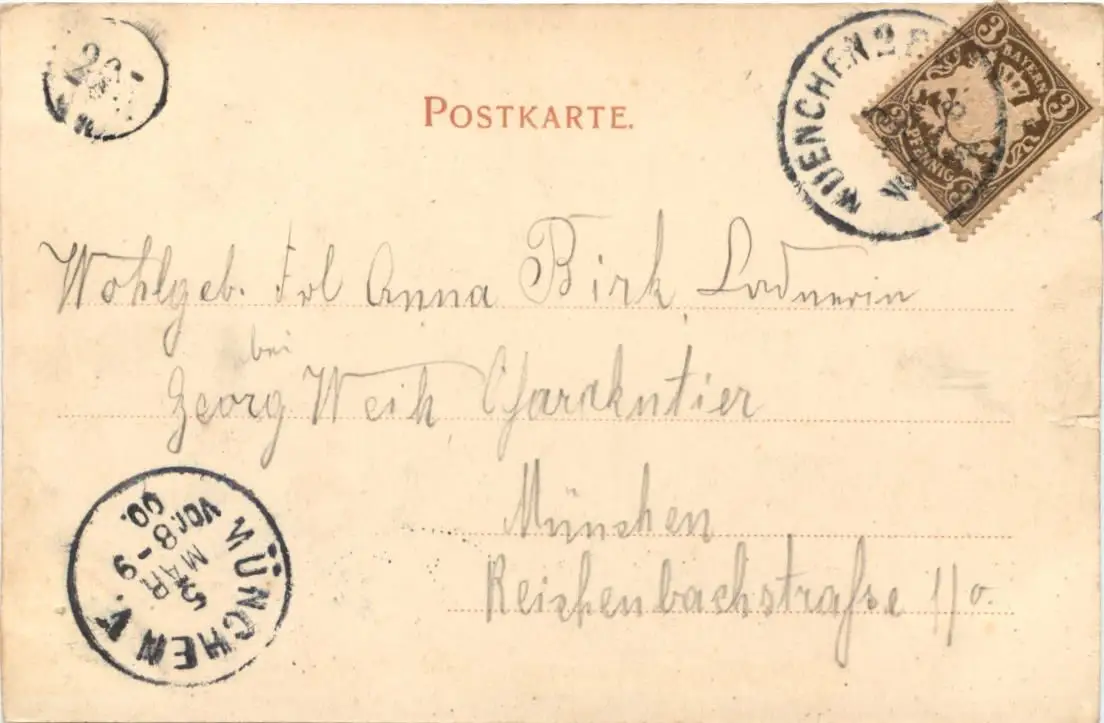 POSTKARTE.
MUENCHEN 2
3 BAYERN 3
3 PFENNIG 3
Wohlgeb. Frl Anna Birk Ladnerin
bei
Georg Weih Charakutier
München
Reichenbachstraße 11/0.
MÜNCHEN V.
5 MAR
Vor. 8 - 9
00.